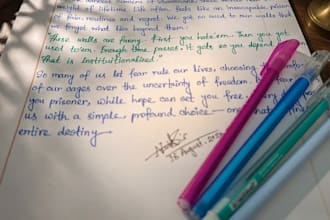 lifetime. Life often feels like an inescapable prison
of pain, routines and regret. We get so used to our walls that
we forget what lies beyond them.
"These walls are funny. First you hate 'em. Then you get
used to 'em. Enough time passes, it gets so you depend
That is Institutionalized."
So many of us let fear rule our lives, choosing the
of our cages over the uncertainty of freedom. Fear
you prisoner, while hope can set you free.
us with a simple, profound choice— one that
entire destiny—
18 August,